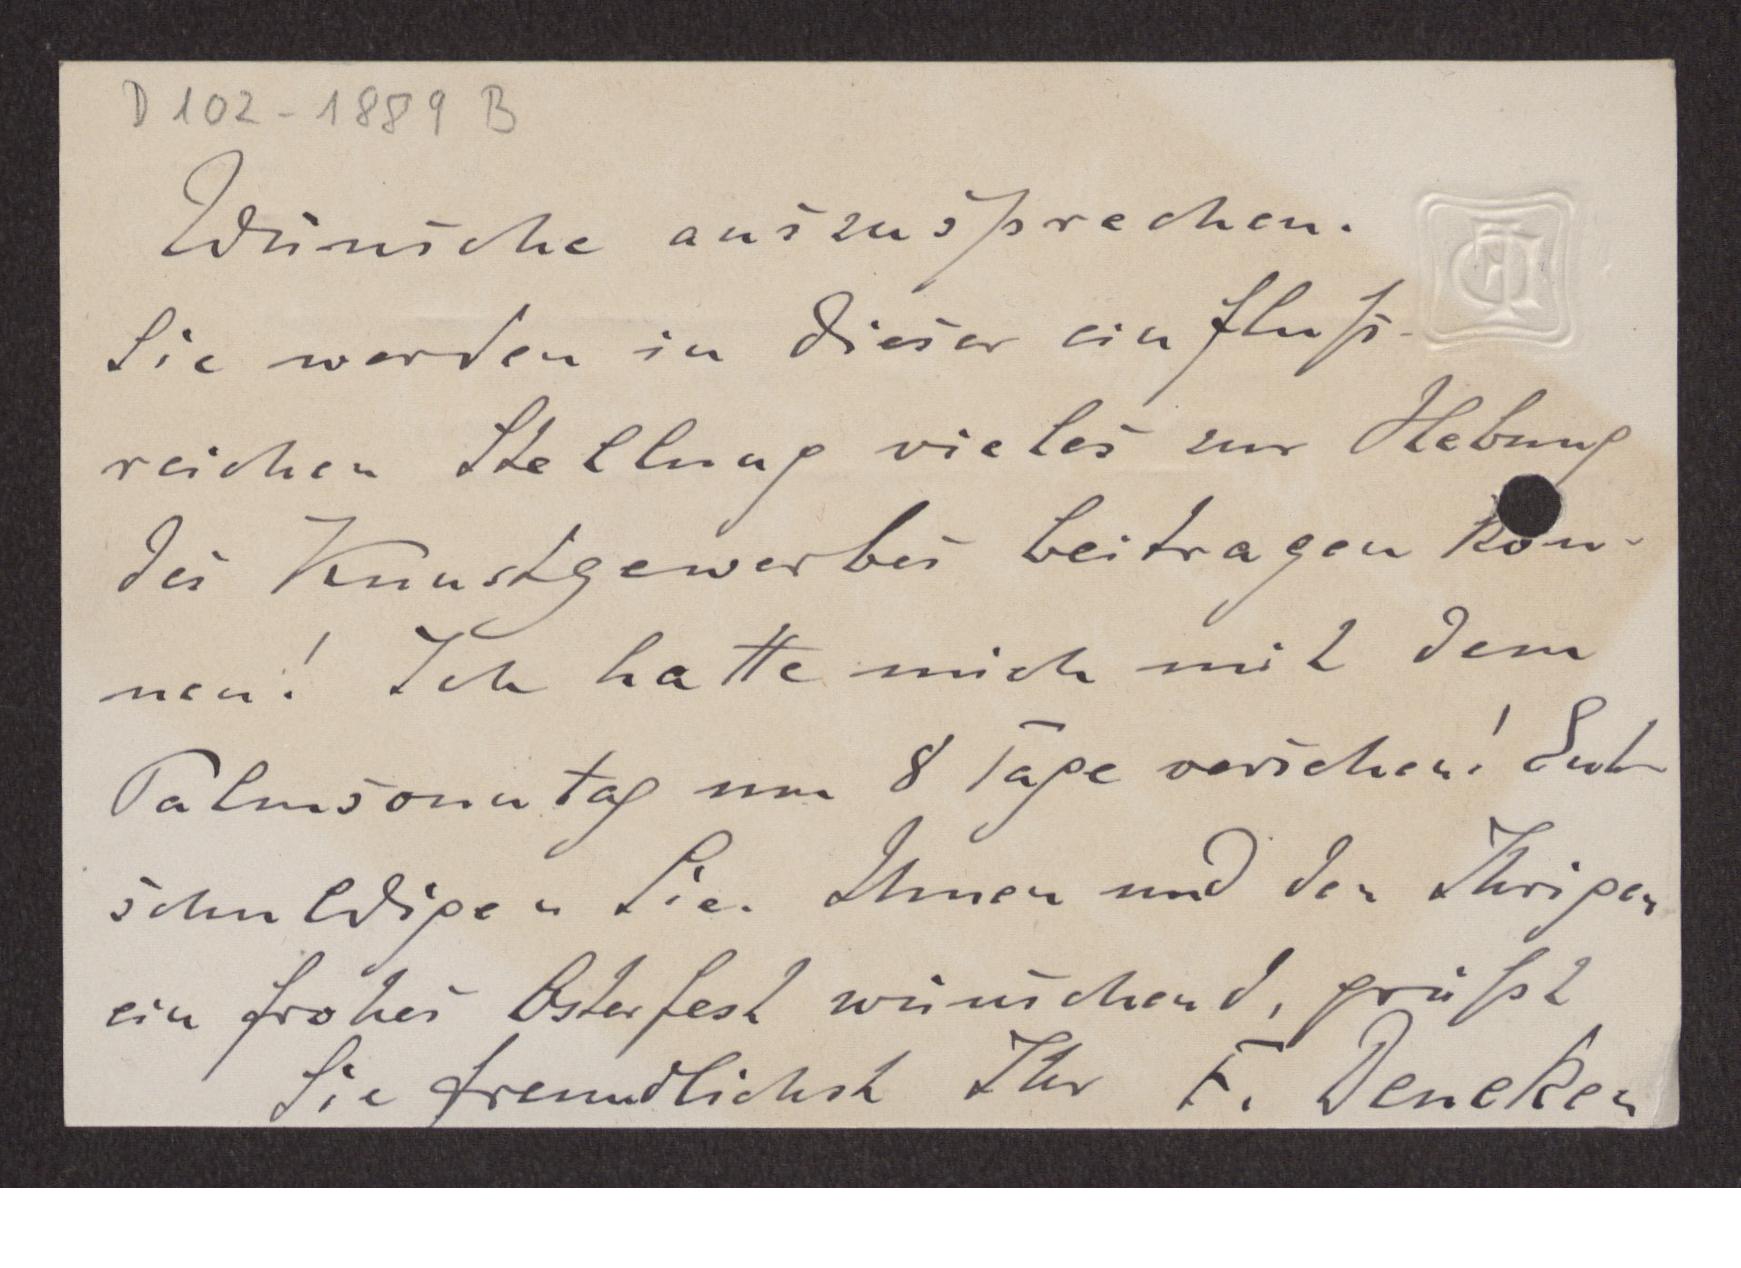 D 102-1889 B
Wünsche auszusprechen.
Sie werden in dieser einfluß-
reichen Stellung vieles zur Hebung
des Kunstgewerbes beitragen kön-
nen! Ich hatte mich mit dem
Palmsonntag um 8 Tage versehen! Ent-
schuldigen Sie. Ihnen und den Ihrigen
ein frohes Osterfest wünschend, grüßt
Sie freundlichst Ihr F. Deneken